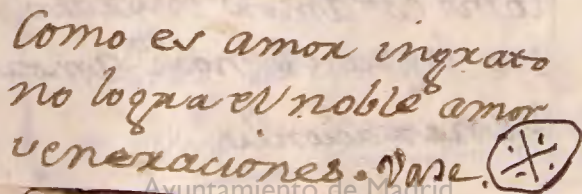 Como es amor ingrato
no logra el noble amor
veneraciones. Vase.
Ayuntamiento de Madrid